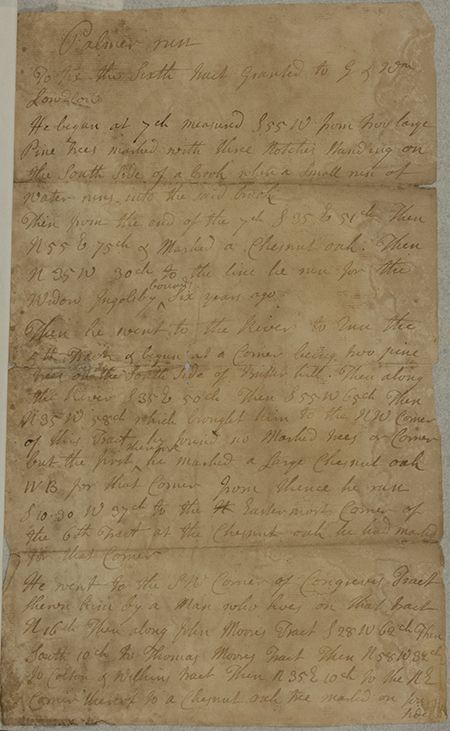 Palmer run
To fix the Sixth tract Granted to G & Wm
Lowdon
He began at 7ch measured S 55 W from two large
Pine trees marked with three Notches standing on
the South Side of a brook where a small run of
water runs into the said brook
Then from the end of the 7ch S 35 E 51ch Then
N 55 E 75ch & Marked a Chesnut oak. Then
N 35 W 30ch to the line he run for the
Widow Ingolsby Six years ago
Then he went to the River to run the
Tract & began at a Corner being two pine
trees on the South Side of hill. Then along
the River S 35 E 50ch Then S 55 W 65ch Then
N 35 W 58ch which brought him to the NW Corner
of this Tract, he found no Marked trees or Corner
but the first, therefore he marked a Large Chesnut oak
WB for that Corner from thence he run
S 10.30 W 37ch to the Eastermost Corner of
the 6th Tract at the Chesnut oak he had marked
for that Corner
He went to the SW Corner of Congreves Tract
shewn him by a Man who lives on that tract
N 16ch Then along John Moores Tract S 28 W 62ch Then
South 10ch to Thomas Moores Tract Then N 58 W 32ch
to Colton & Wilkins tract Then N 35 E 10ch to the N E
Corner thereof to a Chesnut oak tree marked on four
sides